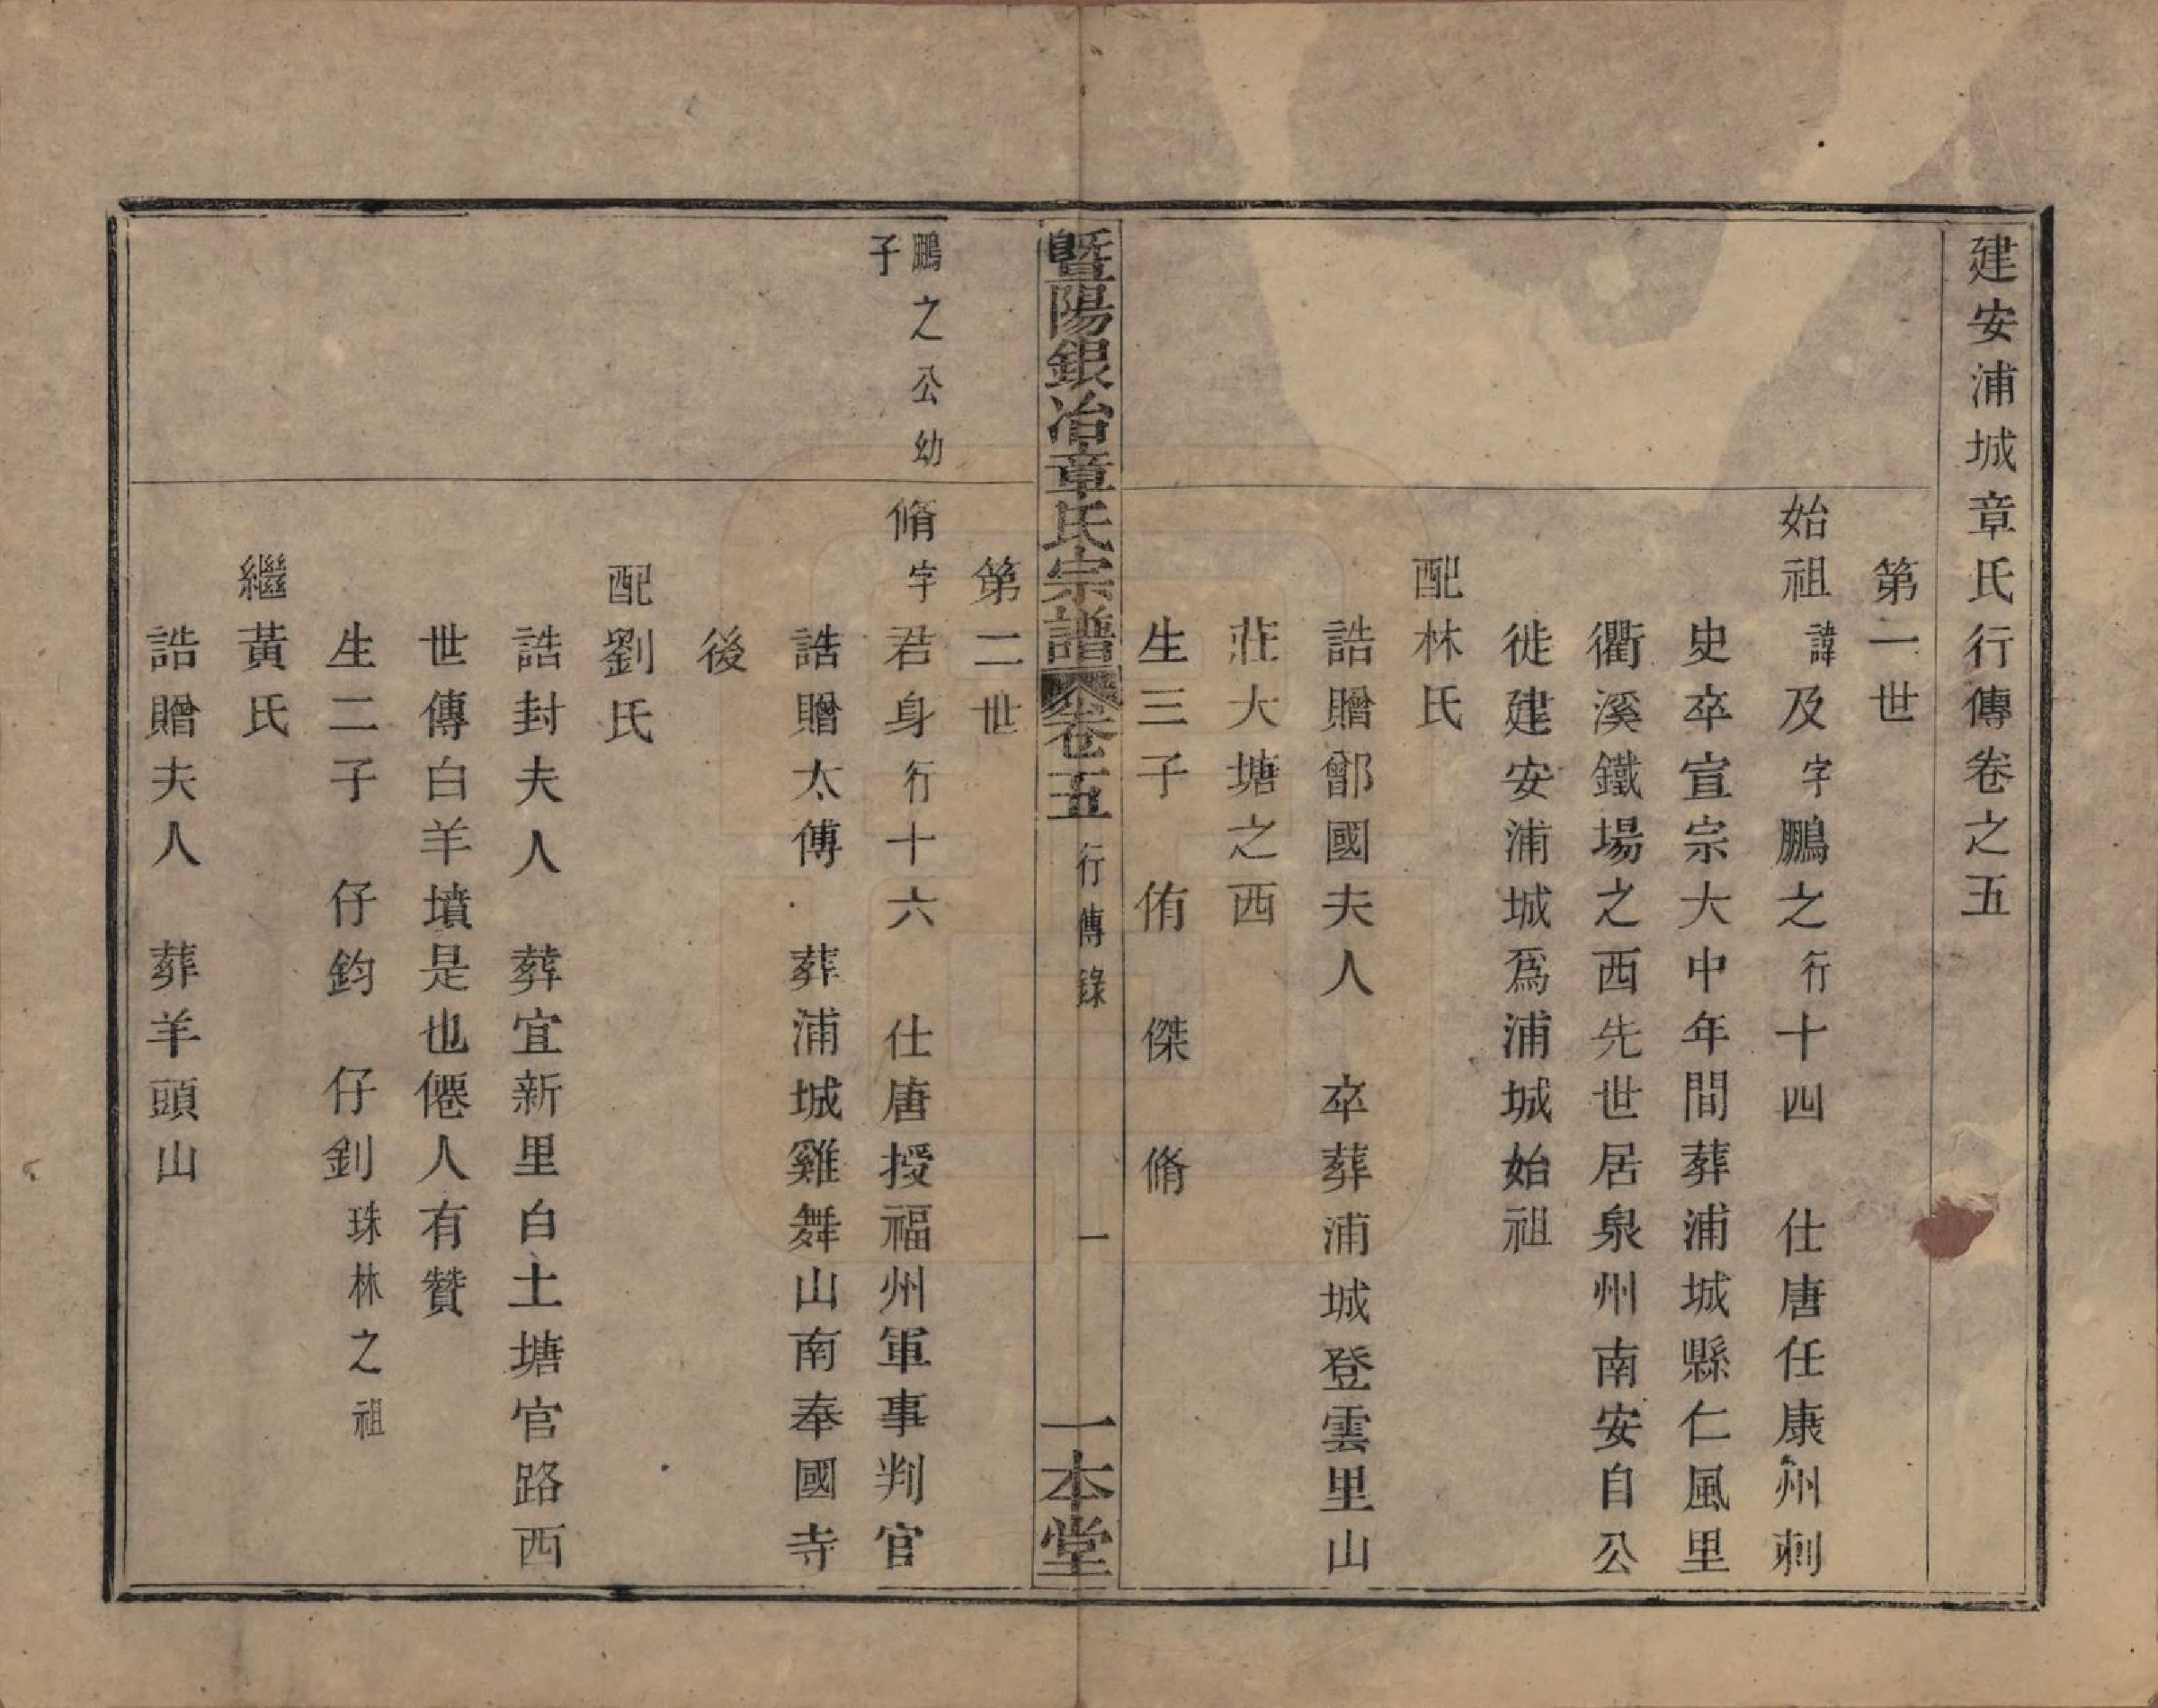 建安浦城章氏行傳卷之五
第一世
始祖諱及字鵬之行十四　仕唐任康州刺
史卒宣宗大中年間葬浦城縣仁風里
衢溪鐵場之西先世居泉州南安自公
徙建安浦城爲浦城始祖
配林氏
誥贈鄫國夫人　卒葬浦城登雲里山
莊大塘之西
生三子　侑　傑　脩
暨陽銀冶章氏宗譜　卷五　行傳錄　一　一本堂
第二世
鵬之公幼
子
脩字君身行十六　仕唐授福州軍事判官
誥贈太傅　葬浦城雞舞山南奉國寺
後
配劉氏
誥封夫人　葬宜新里白土塘官路西
世傳白羊墳是也僊人有贊
生二子　仔鈞　仔釗珠林之祖
繼黃氏
誥贈夫人　葬羊頭山